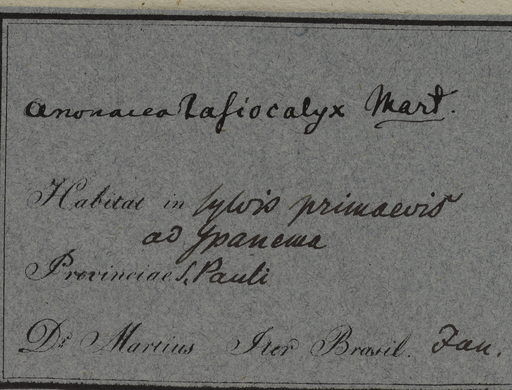 Anonacea lasiocalyx Mart.
Habitat in sylvis primaevis
ad Ypanema
Provinciae S. Pauli
Dr Martius Iter Brasil. Jan.